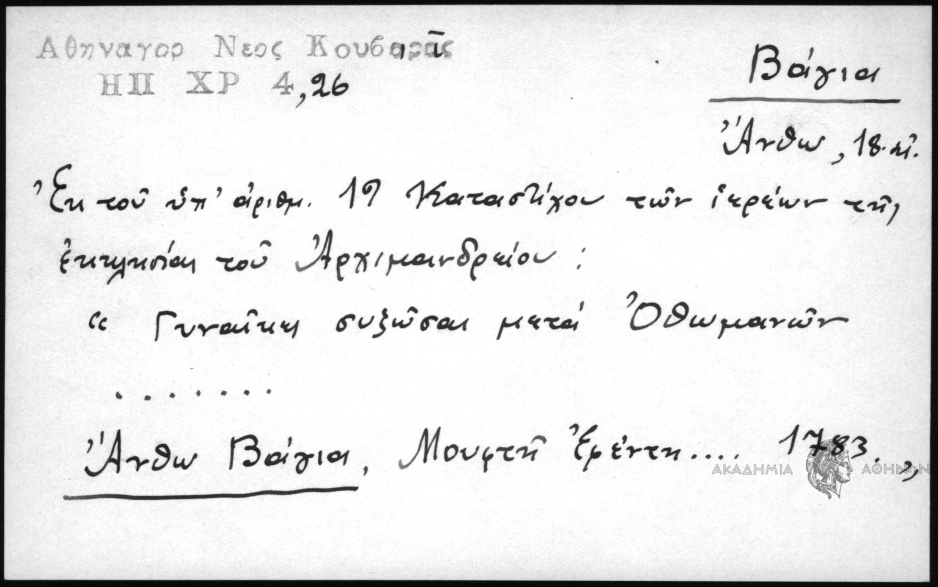 Αθηναγορ Νεος Κουβαρας
ΗΠ ΧΡ 4,26
Βάγια
Ἄνθω, 18. αἰ.
Ἐκ τοῦ ὑπ' ἀριθμ. 19 Καταστίχου τῶν ἱερέων τῆς
ἐκκλησίας τοῦ Ἀρχιμανδρείου :
“ Γυναῖκες συζῶσαι μετά Ὀθωμανῶν
. . . . . . .
Ἄνθω Βάγια, Μουφτῆ Ἐφέντη.... 1783. „
ΑΚΑΔΗΜΙΑ ΑΘΗΝΩΝ